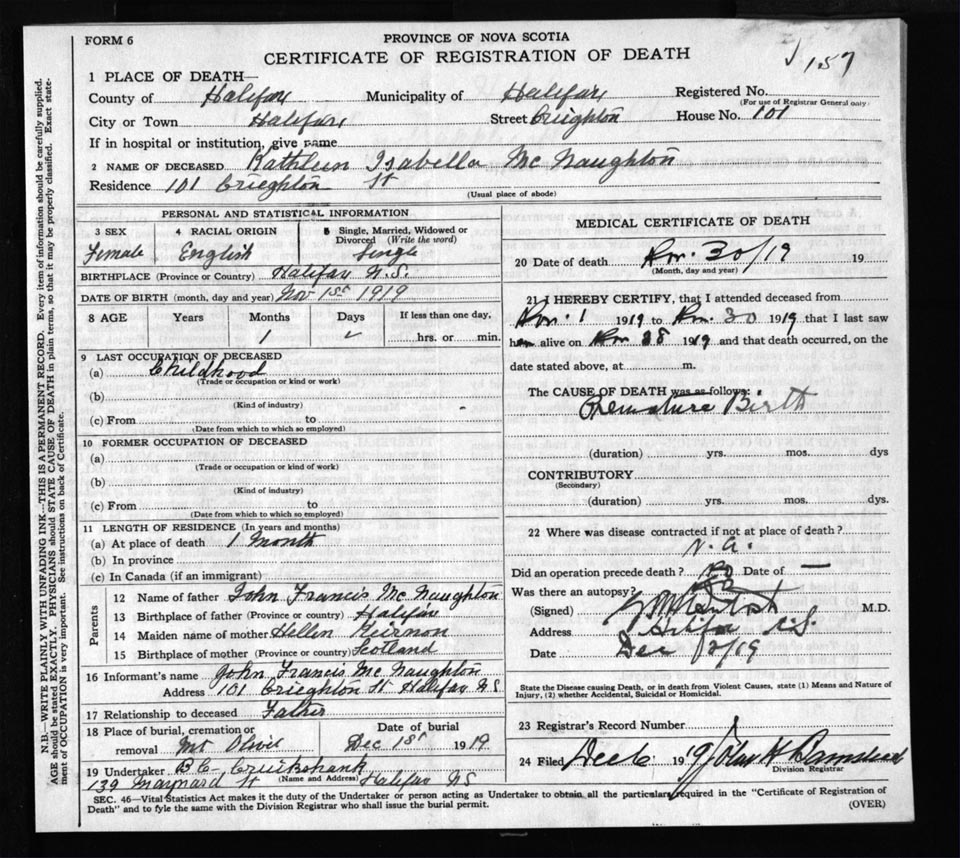 FORM 6
PROVINCE OF NOVA SCOTIA
CERTIFICATE OF REGISTRATION OF DEATH
157
1 PLACE OF DEATH—
County of Halifax Municipality of Halifax Registered No.
(For use of Registrar General only)
City or Town Halifax Street Crieghton House No. 101
If in hospital or institution, give name
2 NAME OF DECEASED Kathleen Isabella Mc Naughton
Residence 101 Crieghton St
(Usual place of abode)
PERSONAL AND STATISTICAL INFORMATION
3 SEX 4 RACIAL ORIGIN 5 Single, Married, Widowed or Divorced (Write the word)
Female English Single
BIRTHPLACE (Province or Country) Halifax N.S.
DATE OF BIRTH (month, day and year) Nov 1st 1919
8 AGE Years Months Days If less than one day,
1 hrs. or min.
9 LAST OCCUPATION OF DECEASED
(a) Childhood
(Trade or occupation or kind or work)
(b)
(Kind of industry)
(c) From to
(Date from which to which so employed)
10 FORMER OCCUPATION OF DECEASED
(a)
(Trade or occupation or kind or work)
(b)
(Kind of industry)
(c) From to
(Date from which to which so employed)
11 LENGTH OF RESIDENCE (In years and months)
(a) At place of death 1 Month
(b) In province
(c) In Canada (if an immigrant)
Parents
12 Name of father John Francis Mc Naughton
13 Birthplace of father (Province or country) Halifax
14 Maiden name of mother Hellen Keirnon
15 Birthplace of mother (Province or country) Scotland
16 Informant's name John Francis Mc Naughton
Address 101 Crieghton St Halifax NS
17 Relationship to deceased Father
18 Place of burial, cremation or removal Mt Olivet
Date of burial Dec 1st 1919
19 Undertaker B C Cruikshank
(Name and Address)
139 Maynard St Halifax NS
MEDICAL CERTIFICATE OF DEATH
20 Date of death Nov. 30/19 19
(Month, day and year)
21 I HEREBY CERTIFY, that I attended deceased from
Nov. 1 1919 to Nov. 30 1919 that I last saw
alive on Nov 28 1919 and that death occurred, on the
date stated above, at m.
The CAUSE OF DEATH was as follows:
Premature Birth
(duration) yrs. mos. dys
CONTRIBUTORY
(Secondary)
(duration) yrs. mos. dys.
22 Where was disease contracted if not at place of death?
N. A.
Did an operation precede death? No Date of —
Was there an autopsy? No
(Signed) M.D.
Address Halifax N.S.
Date Dec 12/19
State the Disease causing Death, or in death from Violent Causes, state (1) Means and Nature of
Injury, (2) whether Accidental, Suicidal or Homicidal.
23 Registrar's Record Number
24 Filed Dec 6 1919 John H
Division Registrar
SEC. 46—Vital Statistics Act makes it the duty of the Undertaker or person acting as Undertaker to obtain all the particulars required in the "Certificate of Registration of
Death" and to fyle the same with the Division Registrar who shall issue the burial permit.
(OVER)
N.B.—WRITE PLAINLY WITH UNFADING INK—THIS IS A PERMANENT RECORD. Every item of information should be carefully supplied.
AGE should be stated EXACTLY. PHYSICIANS should STATE CAUSE OF DEATH in plain terms, so that it may be properly classified. Exact statement of OCCUPATION is very important. See instructions on back of Certificate.